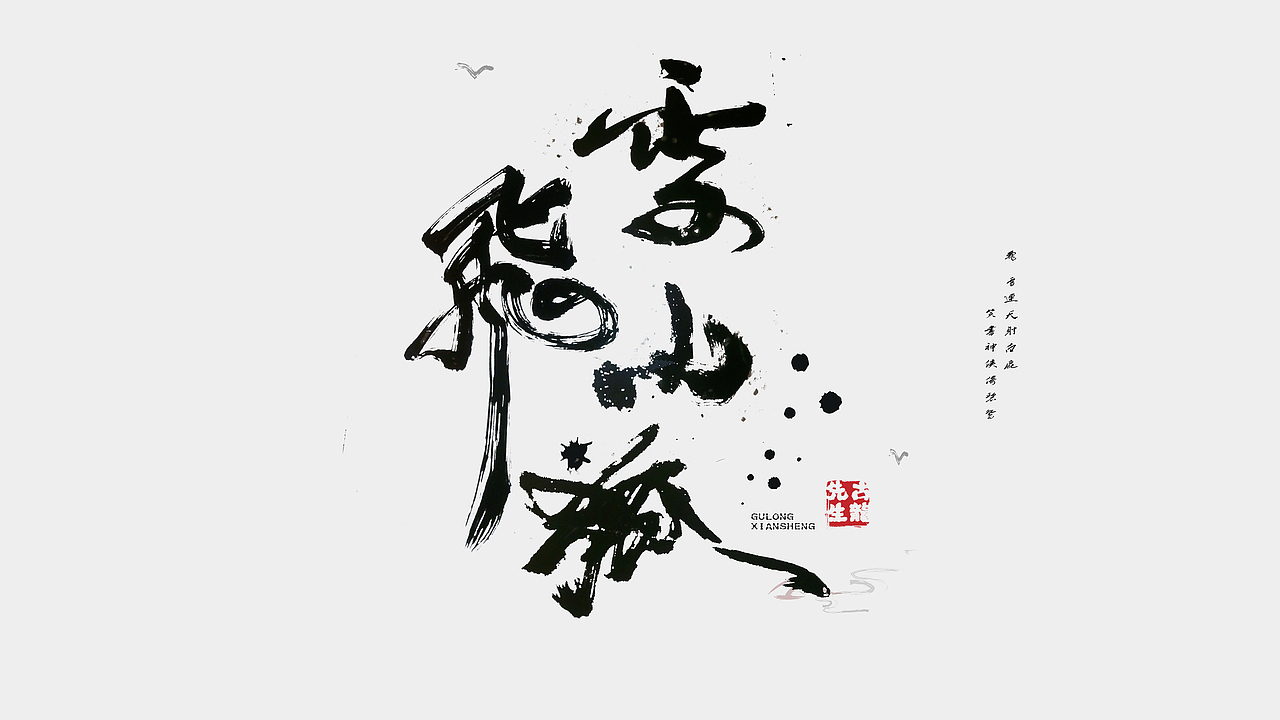 雪山飛狐
飛雪連天射白鹿
笑書神俠倚碧鴛
GULONG
XIANSHENG
古龍
先生